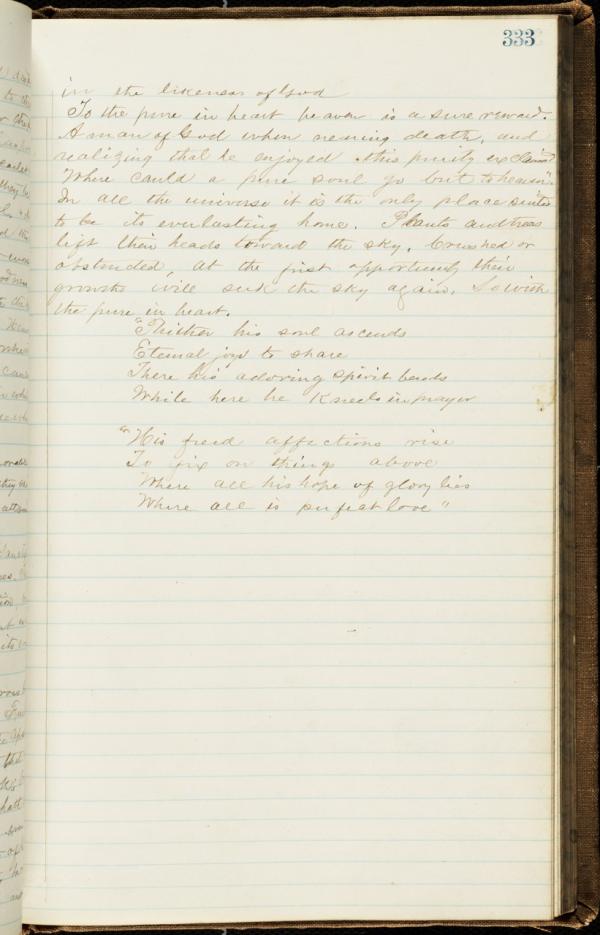 333
in the likeness of God
To the pure in heart heaven is a sure reward.
A man of God when nearing death, and
realizing that he enjoyed this purity exclaimed
"Where could a pure soul go but to heaven".
In all the universe it is the only place suited
to be its everlasting home. Plants and trees
lift their heads toward the sky. Crushed or
obstructed, at the first opportunity their
growths will seek the sky again. So with
the pure in heart.
"Thither his soul ascends
Eternal joys to share
There his adoring spirit bends
While here he kneels in prayer
"His freed affections rise
To fix on things above
Where all his hope of glory lies
Where all is perfect love"